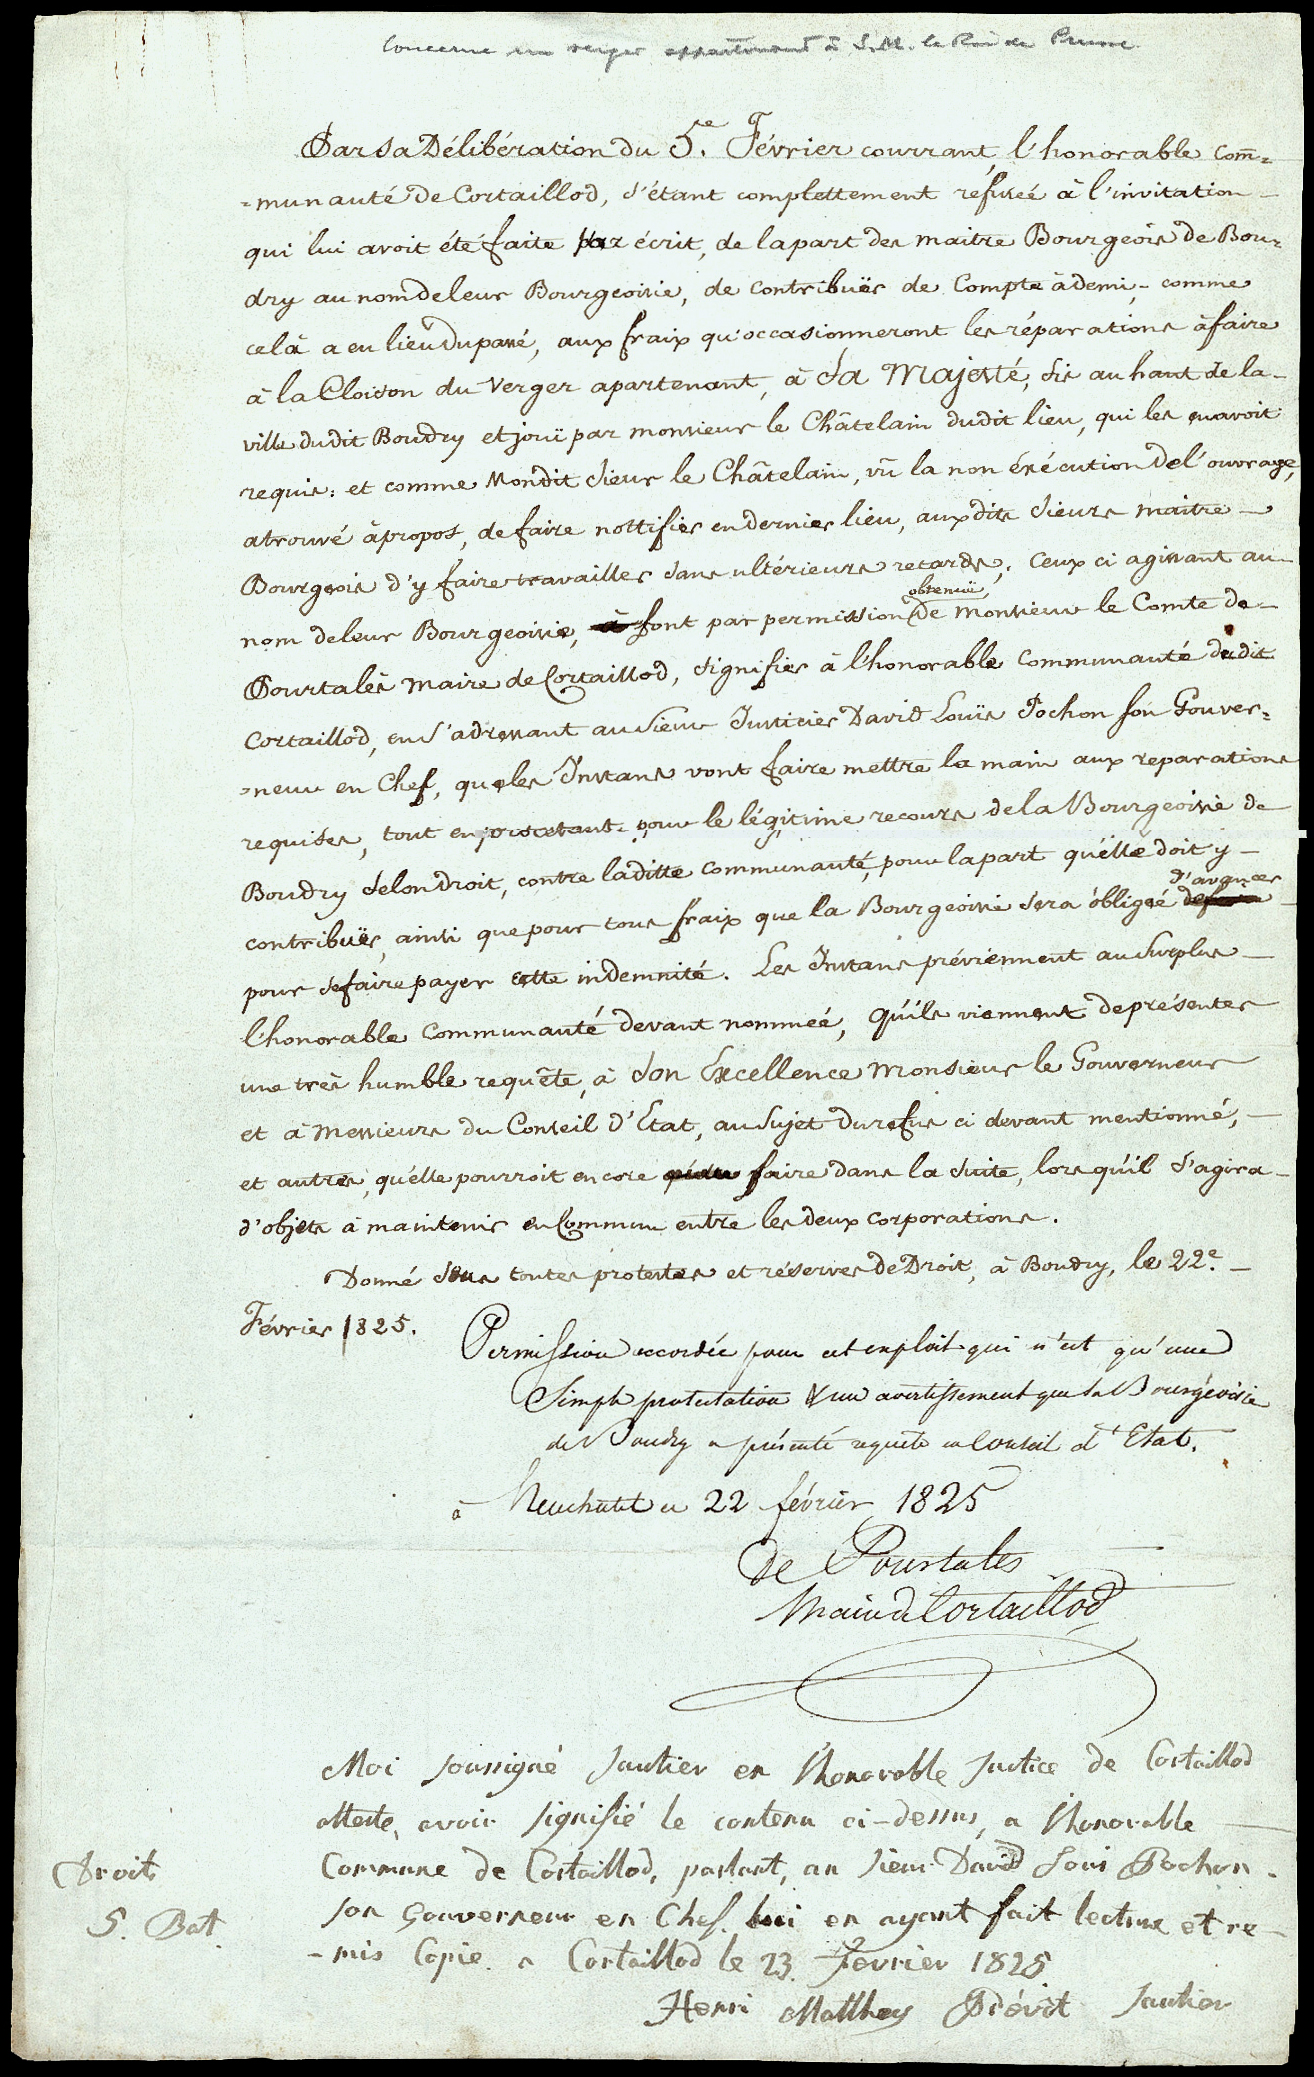 Concerne un verger appartenant à S. M. le Roi de Prusse
Par sa Délibération du 5.e Février courrant, l'honorable com=
=munauté de Cortaillod, s'étant complettement réfuseé à l'invitation
qui lui avoit été faite par écrit, de la part des maitre Bourgeois de Bou=
dry au nom de leur Bourgeoisie, de contribuër de Compte à demi, comme
celà a eu lieu du passé, aux fraix qu'occasionneront les réparations à faire
à la Cloison du Verger apartenant, à Sa Majesté, sis au haut de la
ville dudit Boudry et jouï par monsieur le Châtelain dudit lieu, qui les en avoit
requis: et comme Mondit Sieur le Châtelain, vû la non éxécution de l'ouvrage,
a trouvé à propos, de faire nottifier en dernier lieu, aux dits Sieurs maitre
Bourgeois d'y faire travailler sans ultérieurs retards; Ceux ci agissant au
nom de leur Bourgeoisie, font par permission obtenuë de monsieur le Comte de
Pourtalès Maire de Cortaillod, signifier à l'honorable Communauté du dit
Cortaillod, en s'adressant au Sieur Justicier David Louïs Pochon son Gouver=
=neur en Chef, que les Instans vont faire mettre la main aux reparations
requises, tout en protestant pour le légitime recours de la Bourgeoisie de
Boudry selon droit, contre la ditte communauté, pour la part qu'ëlle doit y
contribuër, ainsi que pour tous fraix que la Bourgeoisie sera obligeé d'avancer
pour se faire payer cette indemnité. Les Instans préviennent au surplus
l'honorable Communauté devant nommeé, qu'ils viennent de présenter
une très humble requête, à Son Excellence Monsieur le Gouverneur
et à Messieurs du Conseil d'Etat, au sujet du refus ci devant mentionné,
et autres, qu'elle pourroit encore faire dans la suite, lors qu'il s'agira
d'objets à maintenir en Commun entre les deux corporations.
Donné sous toutes protestes et réserves de Droit, à Boudry, le 22e.
Février 1825.
Permission accordée pour cet exploit qui n'est qu'une
Simple protestation & un avertissement que la Bourgeoisie
de Boudry a présenté requête au Conseil d'Etat.
à Neuchatel ce 22 février 1825
de Pourtales
Maire de Cortaillod
Moi soussigné sautier en l'honorable Justice de Cortaillod
atteste, avoir signifié le contenu ci-dessus, a l'honorable
Commune de Cortaillod, parlant, au sieur David Louis Pochon
son Gouverneur en Chef. lui en ayant fait lecture et re-
-mis Copie. a Cortaillod le 23 Fevrier 1825
Droit
5. Bat
Henri Matthey Prévôt sautier